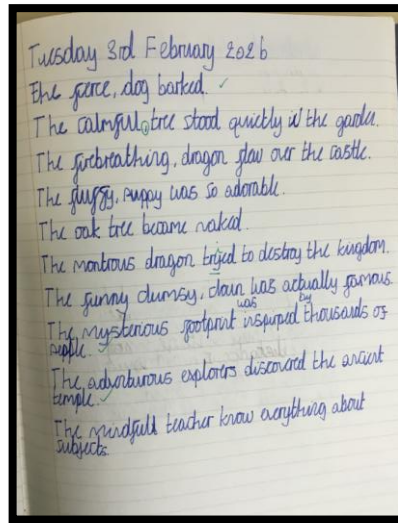 Tuesday 3rd February 2026
The fierce, dog barked.
The calmfull, tree stood quietly in the garden.
The firebreathing, dragon flew over the castle.
The fluffy, puppy was so adorable.
The oak tree became naked.
The montrous dragon tryed to destroy the kingdom.
The funny clumsy, clown was actually famous.
was by
The mysterious footprint inspured thousands of
people.
The adventurous explorers discovered the ancient
temple.
The mindfull teacher know everything about
subjects.